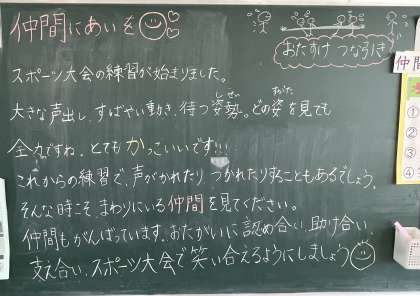 仲間にあいを
おたすけ つなひき
スポーツ大会の練習が始まりました。
しせい すがた
大きな声出し、すばやい動き、待つ姿勢。どの姿を見ても
全力ですね。とても かっこいいです!!!
これからの練習で、声がかれたり つかれたりすることもあるでしょう。
そんな時こそ、まわりにいる仲間を見てください。
仲間もがんばっています。おたがいに認め合い、助け合い、
支え合い、スポーツ大会で笑い合えるようにしましょう
仲間
①
②
③
④